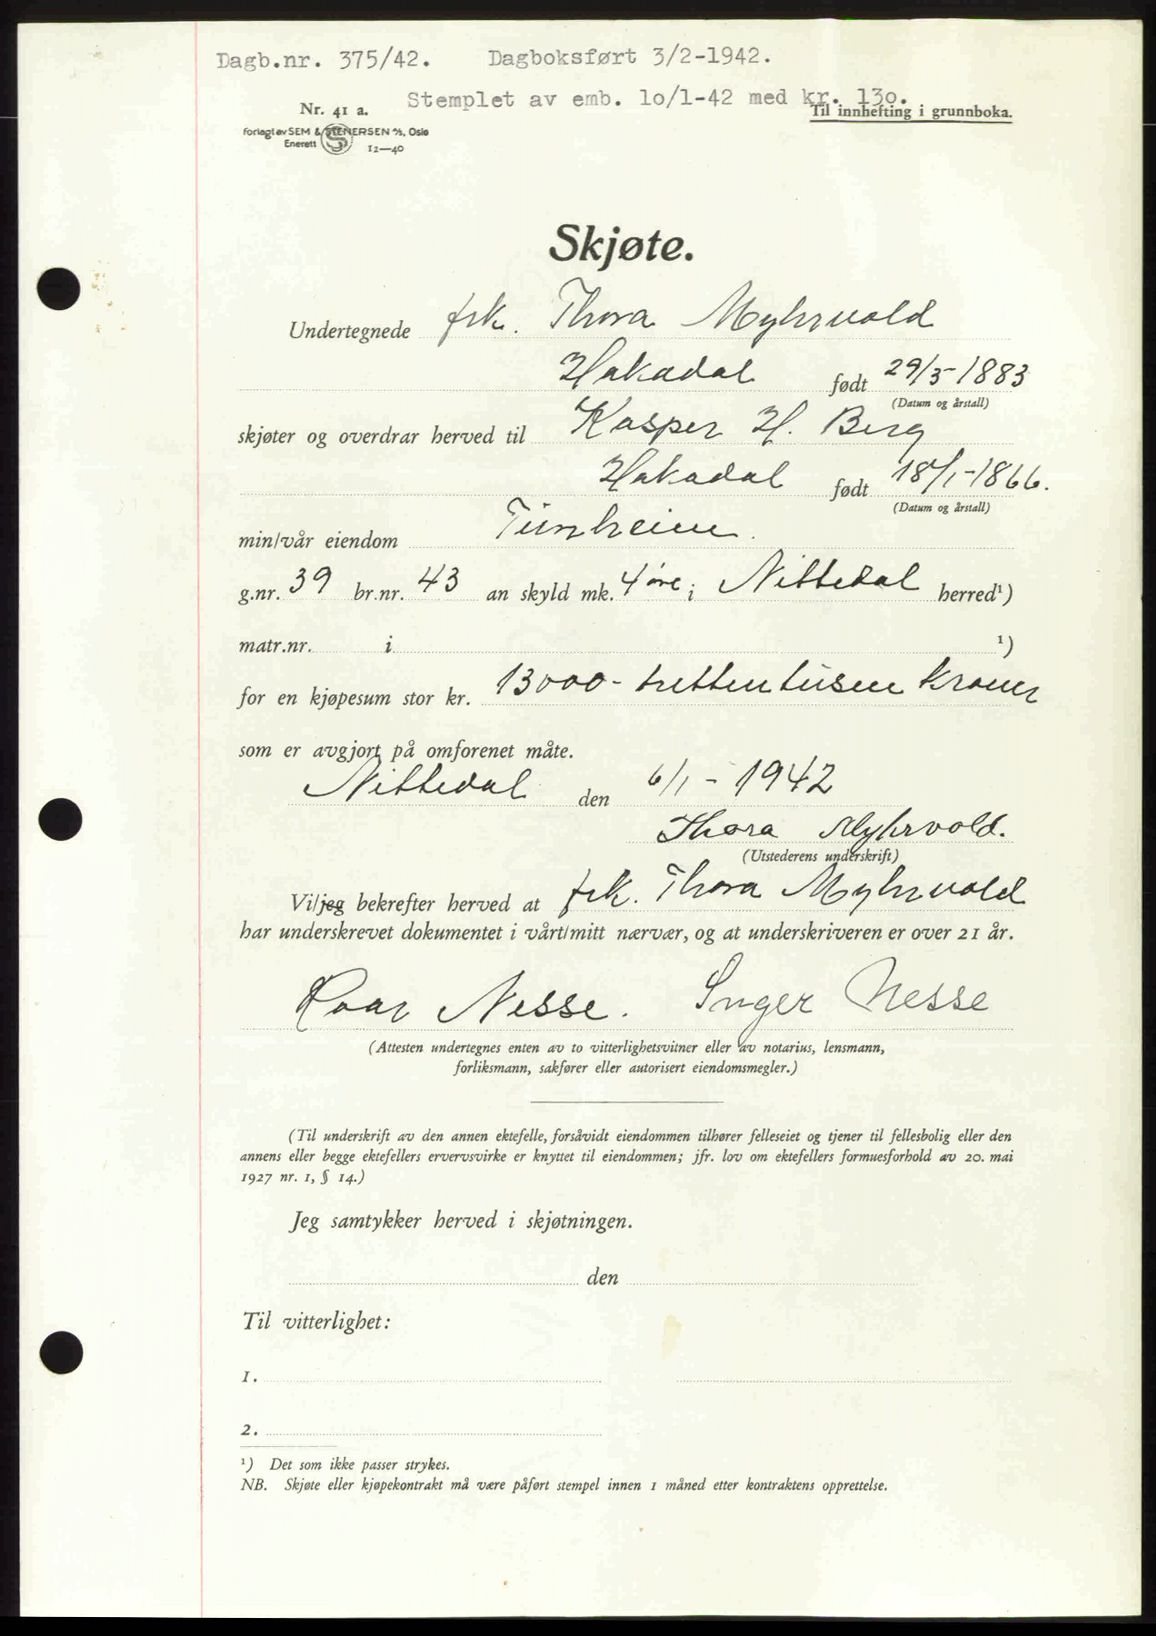 Dagb.nr. 375/42. Dagboksført 3/2-1942.
Stemplet av emb. 10/1-42 med kr. 130.
Nr. 41 a.
Til innhefting i grunnboka.
Forlagt av SEM & STENERSEN A/S, Oslo
Enerett
12—40
Skjøte.
Undertegnede frk. Thora Myhrvold
Hakadal født 29/3-1883
(Datum og årstall)
skjøter og overdrar herved til Kasper H. Berg
Hakadal født 18/1-1866.
(Datum og årstall)
min/vår eiendom Tunheim.
g.nr. 39 br.nr. 43 an skyld mk. 4 øre i Nittedal herred¹)
matr.nr. i ¹)
for en kjøpesum stor kr. 13000- trettentusen kroner
som er avgjort på omforenet måte.
Nittedal den 6/1-1942
Thora Myhrvold.
(Utstederens underskrift)
Vi/jeg bekrefter herved at frk. Thora Myhrvold
har underskrevet dokumentet i vårt/mitt nærvær, og at underskriveren er over 21 år.
Roar Nesse. Inger Nesse
(Attesten undertegnes enten av to vitterlighetsvitner eller av notarius, lensmann,
forliksmann, sakfører eller autorisert eiendomsmegler.)
(Til underskrift av den annen ektefelle, forsåvidt eiendommen tilhører felleseiet og tjener til fellesbolig eller den
annens eller begge ektefellers ervervsvirke er knyttet til eiendommen; jfr. lov om ektefellers formuesforhold av 20. mai
1927 nr. 1, § 14.)
Jeg samtykker herved i skjøtningen.
den
Til vitterlighet:
1.
2.
¹) Det som ikke passer strykes.
NB. Skjøte eller kjøpekontrakt må være påført stempel innen 1 måned etter kontraktens opprettelse.